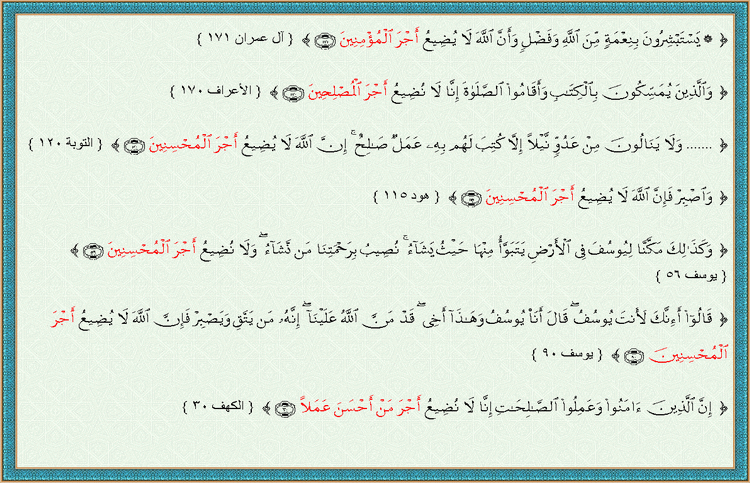 ﴿ ۞ يَسْتَبْشِرُونَ بِنِعْمَةٍ مِّنَ ٱللَّهِ وَفَضْلٍ وَأَنَّ ٱللَّهَ لَا يُضِيعُ أَجْرَ ٱلْمُؤْمِنِينَ ﴾ { آل عمران ١٧١ }
﴿ وَٱلَّذِينَ يُمَسِّكُونَ بِٱلْكِتَـٰبِ وَأَقَامُوا۟ ٱلصَّلَوٰةَ إِنَّا لَا نُضِيعُ أَجْرَ ٱلْمُصْلِحِينَ ﴾ { الأعراف ١٧٠ }
﴿ ....... وَلَا يَنَالُونَ مِنْ عَدُوٍّ نَّيْلًا إِلَّا كُتِبَ لَهُم بِهِۦ عَمَلٌ صَـٰلِحٌ ۚ إِنَّ ٱللَّهَ لَا يُضِيعُ أَجْرَ ٱلْمُحْسِنِينَ ﴾ { التوبة ١٢٠ }
﴿ وَٱصْبِرْ فَإِنَّ ٱللَّهَ لَا يُضِيعُ أَجْرَ ٱلْمُحْسِنِينَ ﴾ { هود ١١٥ }
﴿ وَكَذَٰلِكَ مَكَّنَّا لِيُوسُفَ فِى ٱلْأَرْضِ يَتَبَوَّأُ مِنْهَا حَيْثُ يَشَآءُ ۚ نُصِيبُ بِرَحْمَتِنَا مَن نَّشَآءُ ۖ وَلَا نُضِيعُ أَجْرَ ٱلْمُحْسِنِينَ ﴾
{ يوسف ٥٦ }
﴿ قَالُوٓا۟ أَءِنَّكَ لَأَنتَ يُوسُفُ ۖ قَالَ أَنَا۠ يُوسُفُ وَهَـٰذَآ أَخِى ۖ قَدْ مَنَّ ٱللَّهُ عَلَيْنَآ ۖ إِنَّهُۥ مَن يَتَّقِ وَيَصْبِرْ فَإِنَّ ٱللَّهَ لَا يُضِيعُ أَجْرَ
ٱلْمُحْسِنِينَ ﴾ { يوسف ٩٠ }
﴿ إِنَّ ٱلَّذِينَ ءَامَنُوا۟ وَعَمِلُوا۟ ٱلصَّـٰلِحَـٰتِ إِنَّا لَا نُضِيعُ أَجْرَ مَنْ أَحْسَنَ عَمَلًا ﴾ { الكهف ٣٠ }